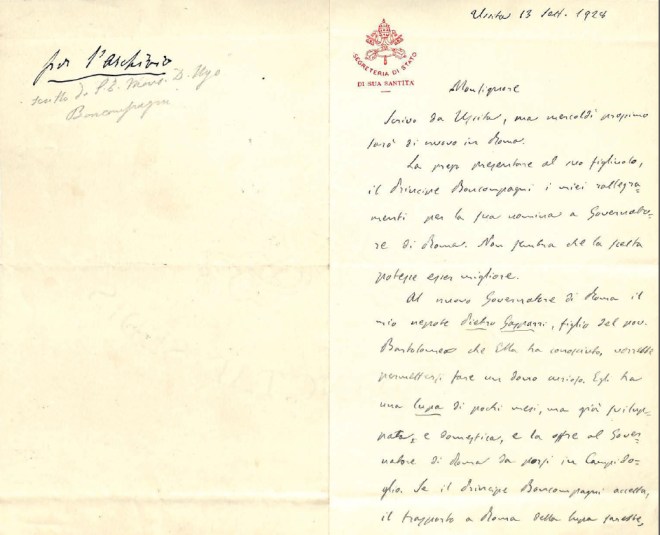 per l'Archivio
scritto da S. E. Mons. D. Ugo
Boncompagni
Ussita 13 Sett. 1928
SEGRETERIA DI STATO
DI SUA SANTITA'
Monsignore
Scrivo da Ussita, ma mercoldì prossimo
sarò di nuovo in Roma.
La prego presentare al suo figliuolo,
il Principe Boncompagni i miei rallegra-
menti per la sua nomina a Governato-
re di Roma. Non sembra che la scelta
potesse esser migliore.
Al nuovo Governatore di Roma il
mio nepote Pietro Gasparri, figlio del pov.
Bartolomeo che Ella ha conosciuto, vorrebbe
permettersi fare un dono curioso. Egli ha
una lupa di pochi mesi, ma già svilup-
pata, e domestica, e la offre al Gover-
natore di Roma da porsi in Campido-
glio. Se il Principe Boncompagni accetta,
il trasporto a Roma della lupa sarebbe,